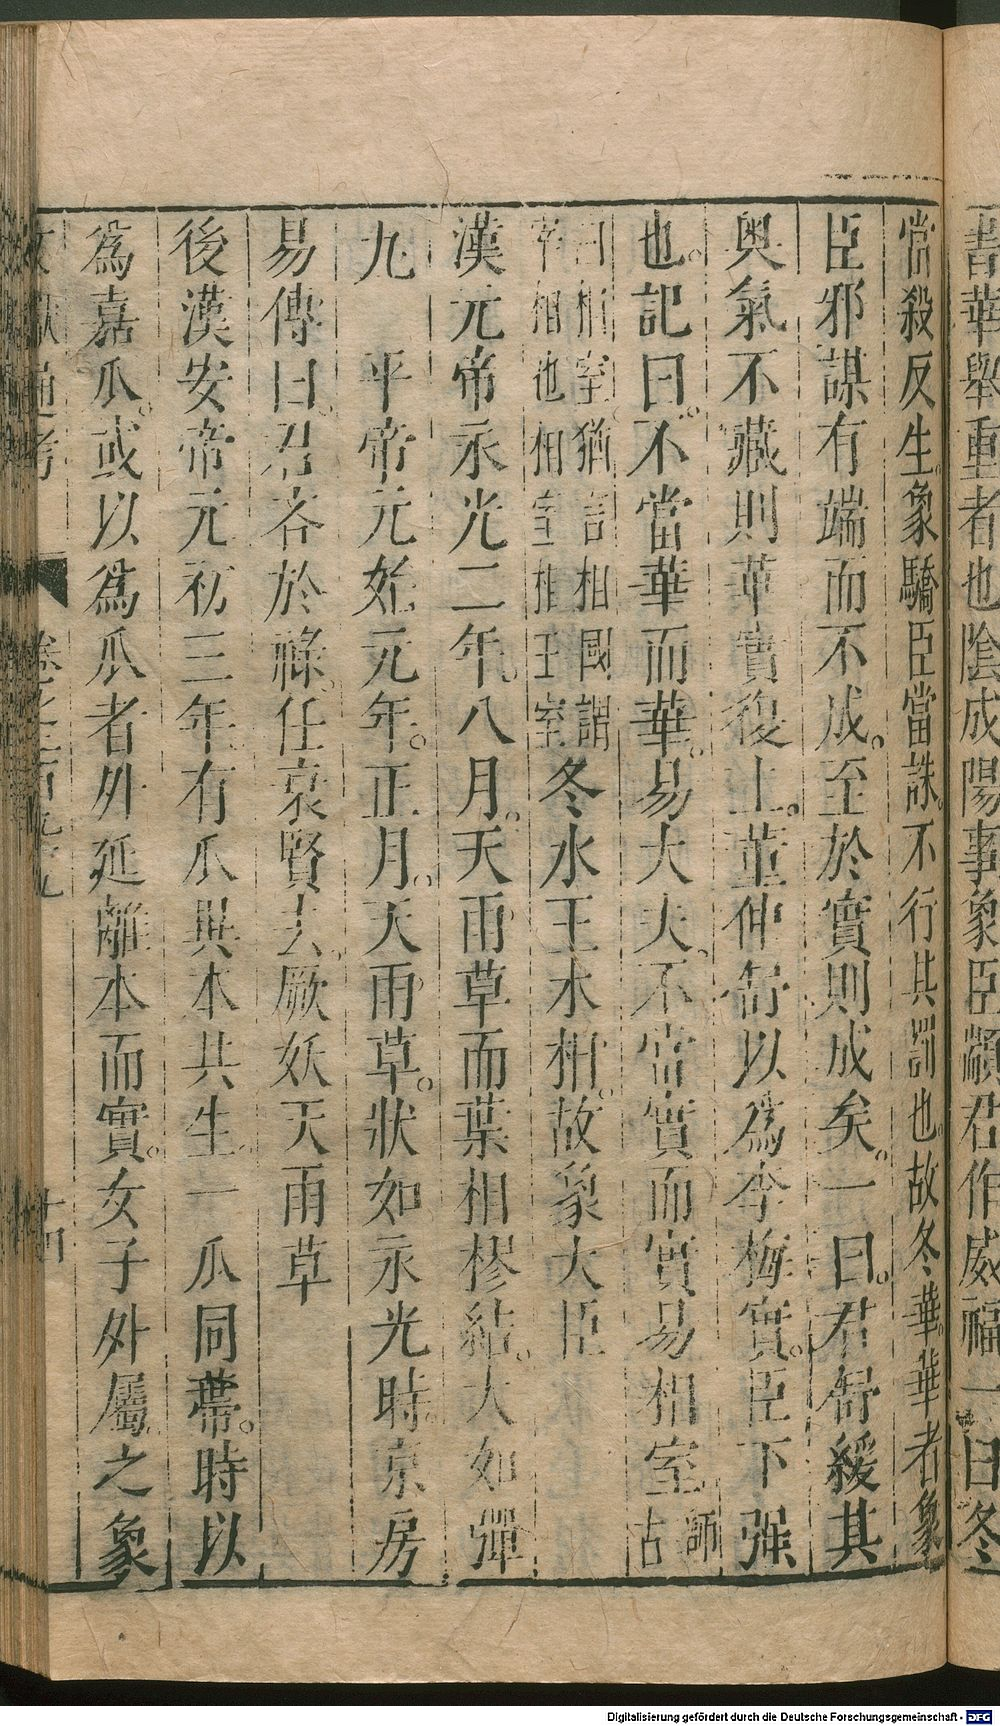 書華舉重者也陰成陽事象臣顓君作威福一曰冬
當殺反生象驕臣當誅不行其罰也故冬華華者象
臣邪謀有端而不成至於實則成矣一曰君舒緩其
奥氣不藏則華實復上董仲舒以爲李梅實臣下强
也記曰不當華而華易大夫不當實而實易相室師古
曰相室猶言相國謂宰相也相室相王室冬水王木相故象大臣
漢元帝永光二年八月天雨草而葉相樛結大如彈
九 平帝元始元年正月天雨草狀如永光時京房
易傳曰君吝於祿任衰賢去厥妖天雨草
後漢安帝元初三年有瓜異本共生一瓜同蔕時以
爲嘉瓜或以爲瓜者外延離本而實女子外屬之象
文獻通考 卷之二百九十九 十四
Digitalisierung gefördert durch die Deutsche Forschungsgemeinschaft - DFG